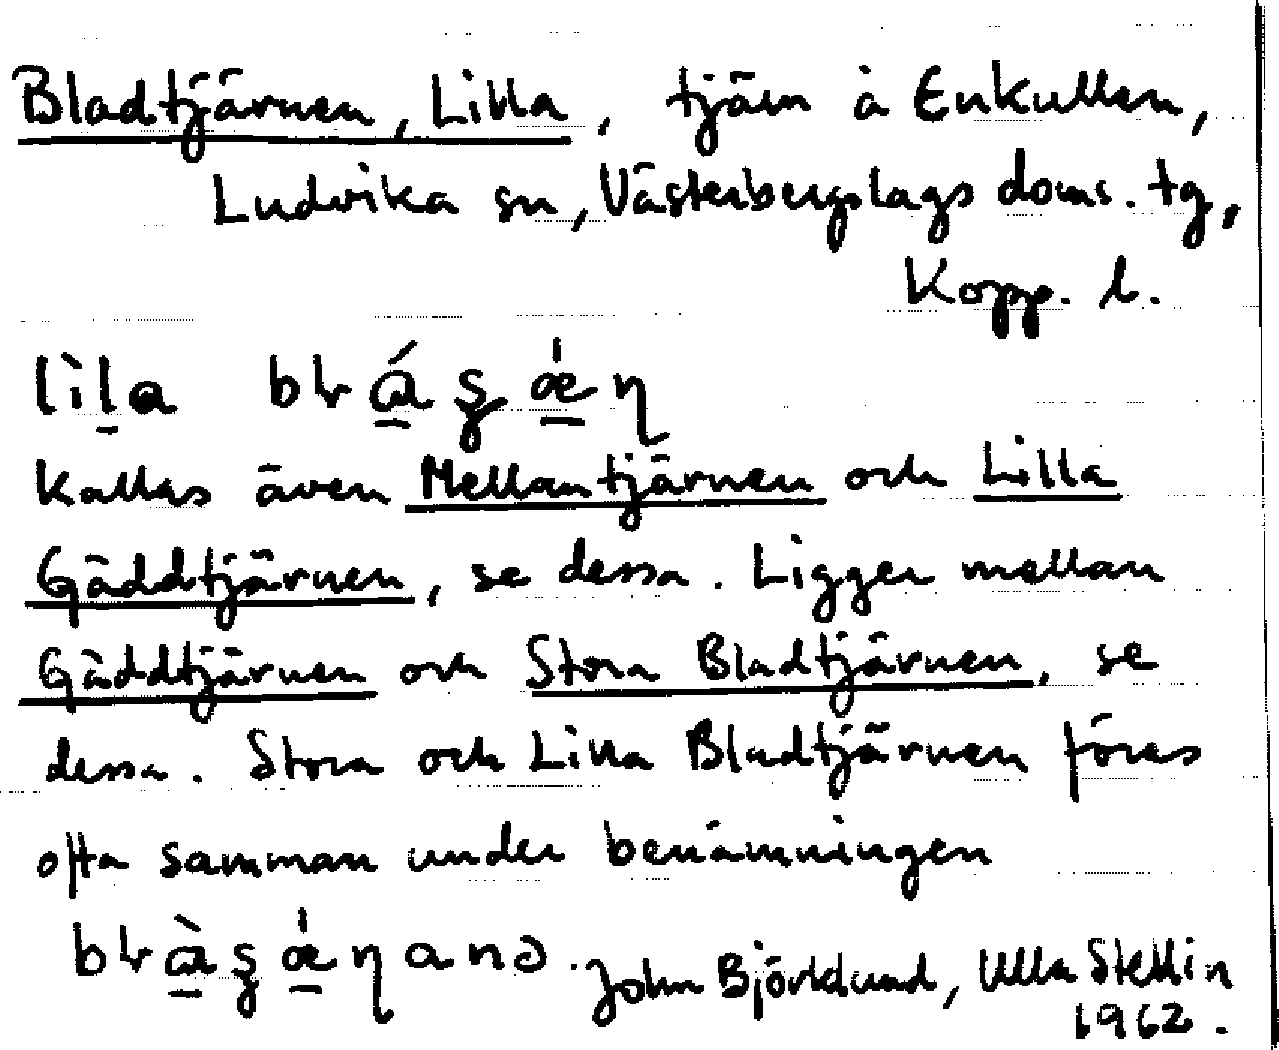 Bladtjärnen, Lilla, tjärn å Enkullen,
Ludvika sn, Västerbergslags doms. tg,
Kopp. l.
kallas även Mellantjärnen och Lilla
Gäddtjärnen, se dessa. Ligger mellan
Gäddtjärnen och Stora Bladtjärnen, se
dessa. Stora och Lilla Bladtjärnen föras
ofta samman under benämningen
John Björklund, Ulla Stellin
1962.